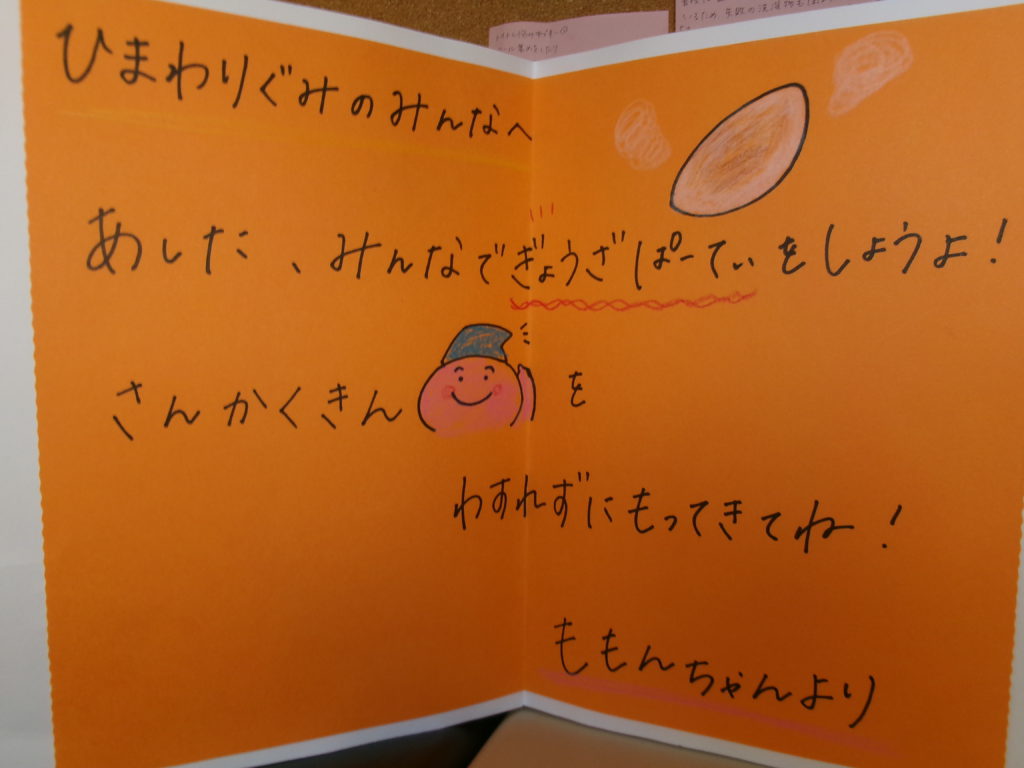 ひまわりぐみのみんなへ
あした、みんなでぎょうざぱーてぃをしようよ!
さんかくきん を
わすれずにもってきてね!
ももんちゃんより